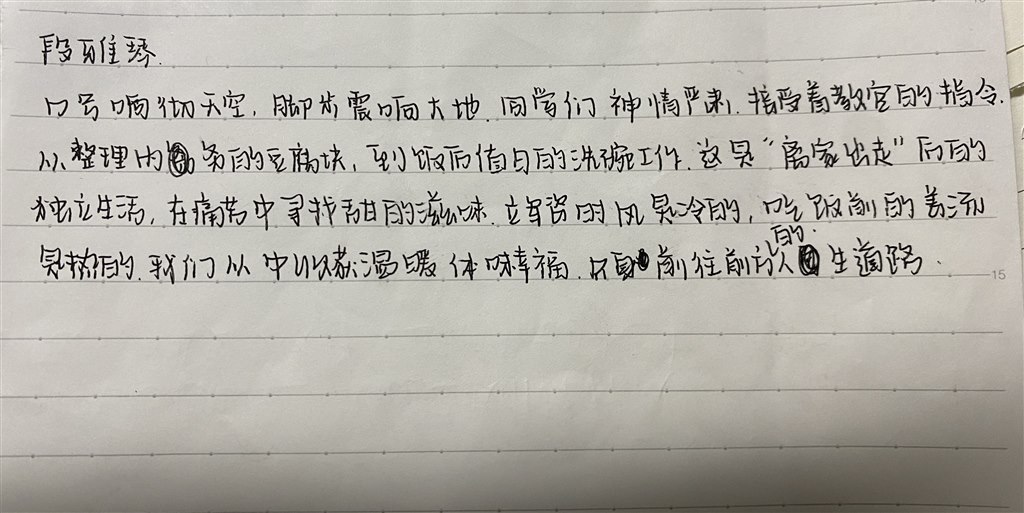 段雅琴.
口号响彻天空,脚步震响大地.同学们神情严肃,接受着教官的指令.
从整理内务的豆腐块,到饭后值日的洗碗工作.这是“离家出走”后的
独立生活,在痛苦中寻找甜的滋味.立军姿时风是冷的,吃饭前的姜汤
是热的.我们从中收获温暖体味幸福.只身前往前方的人生道路.
15